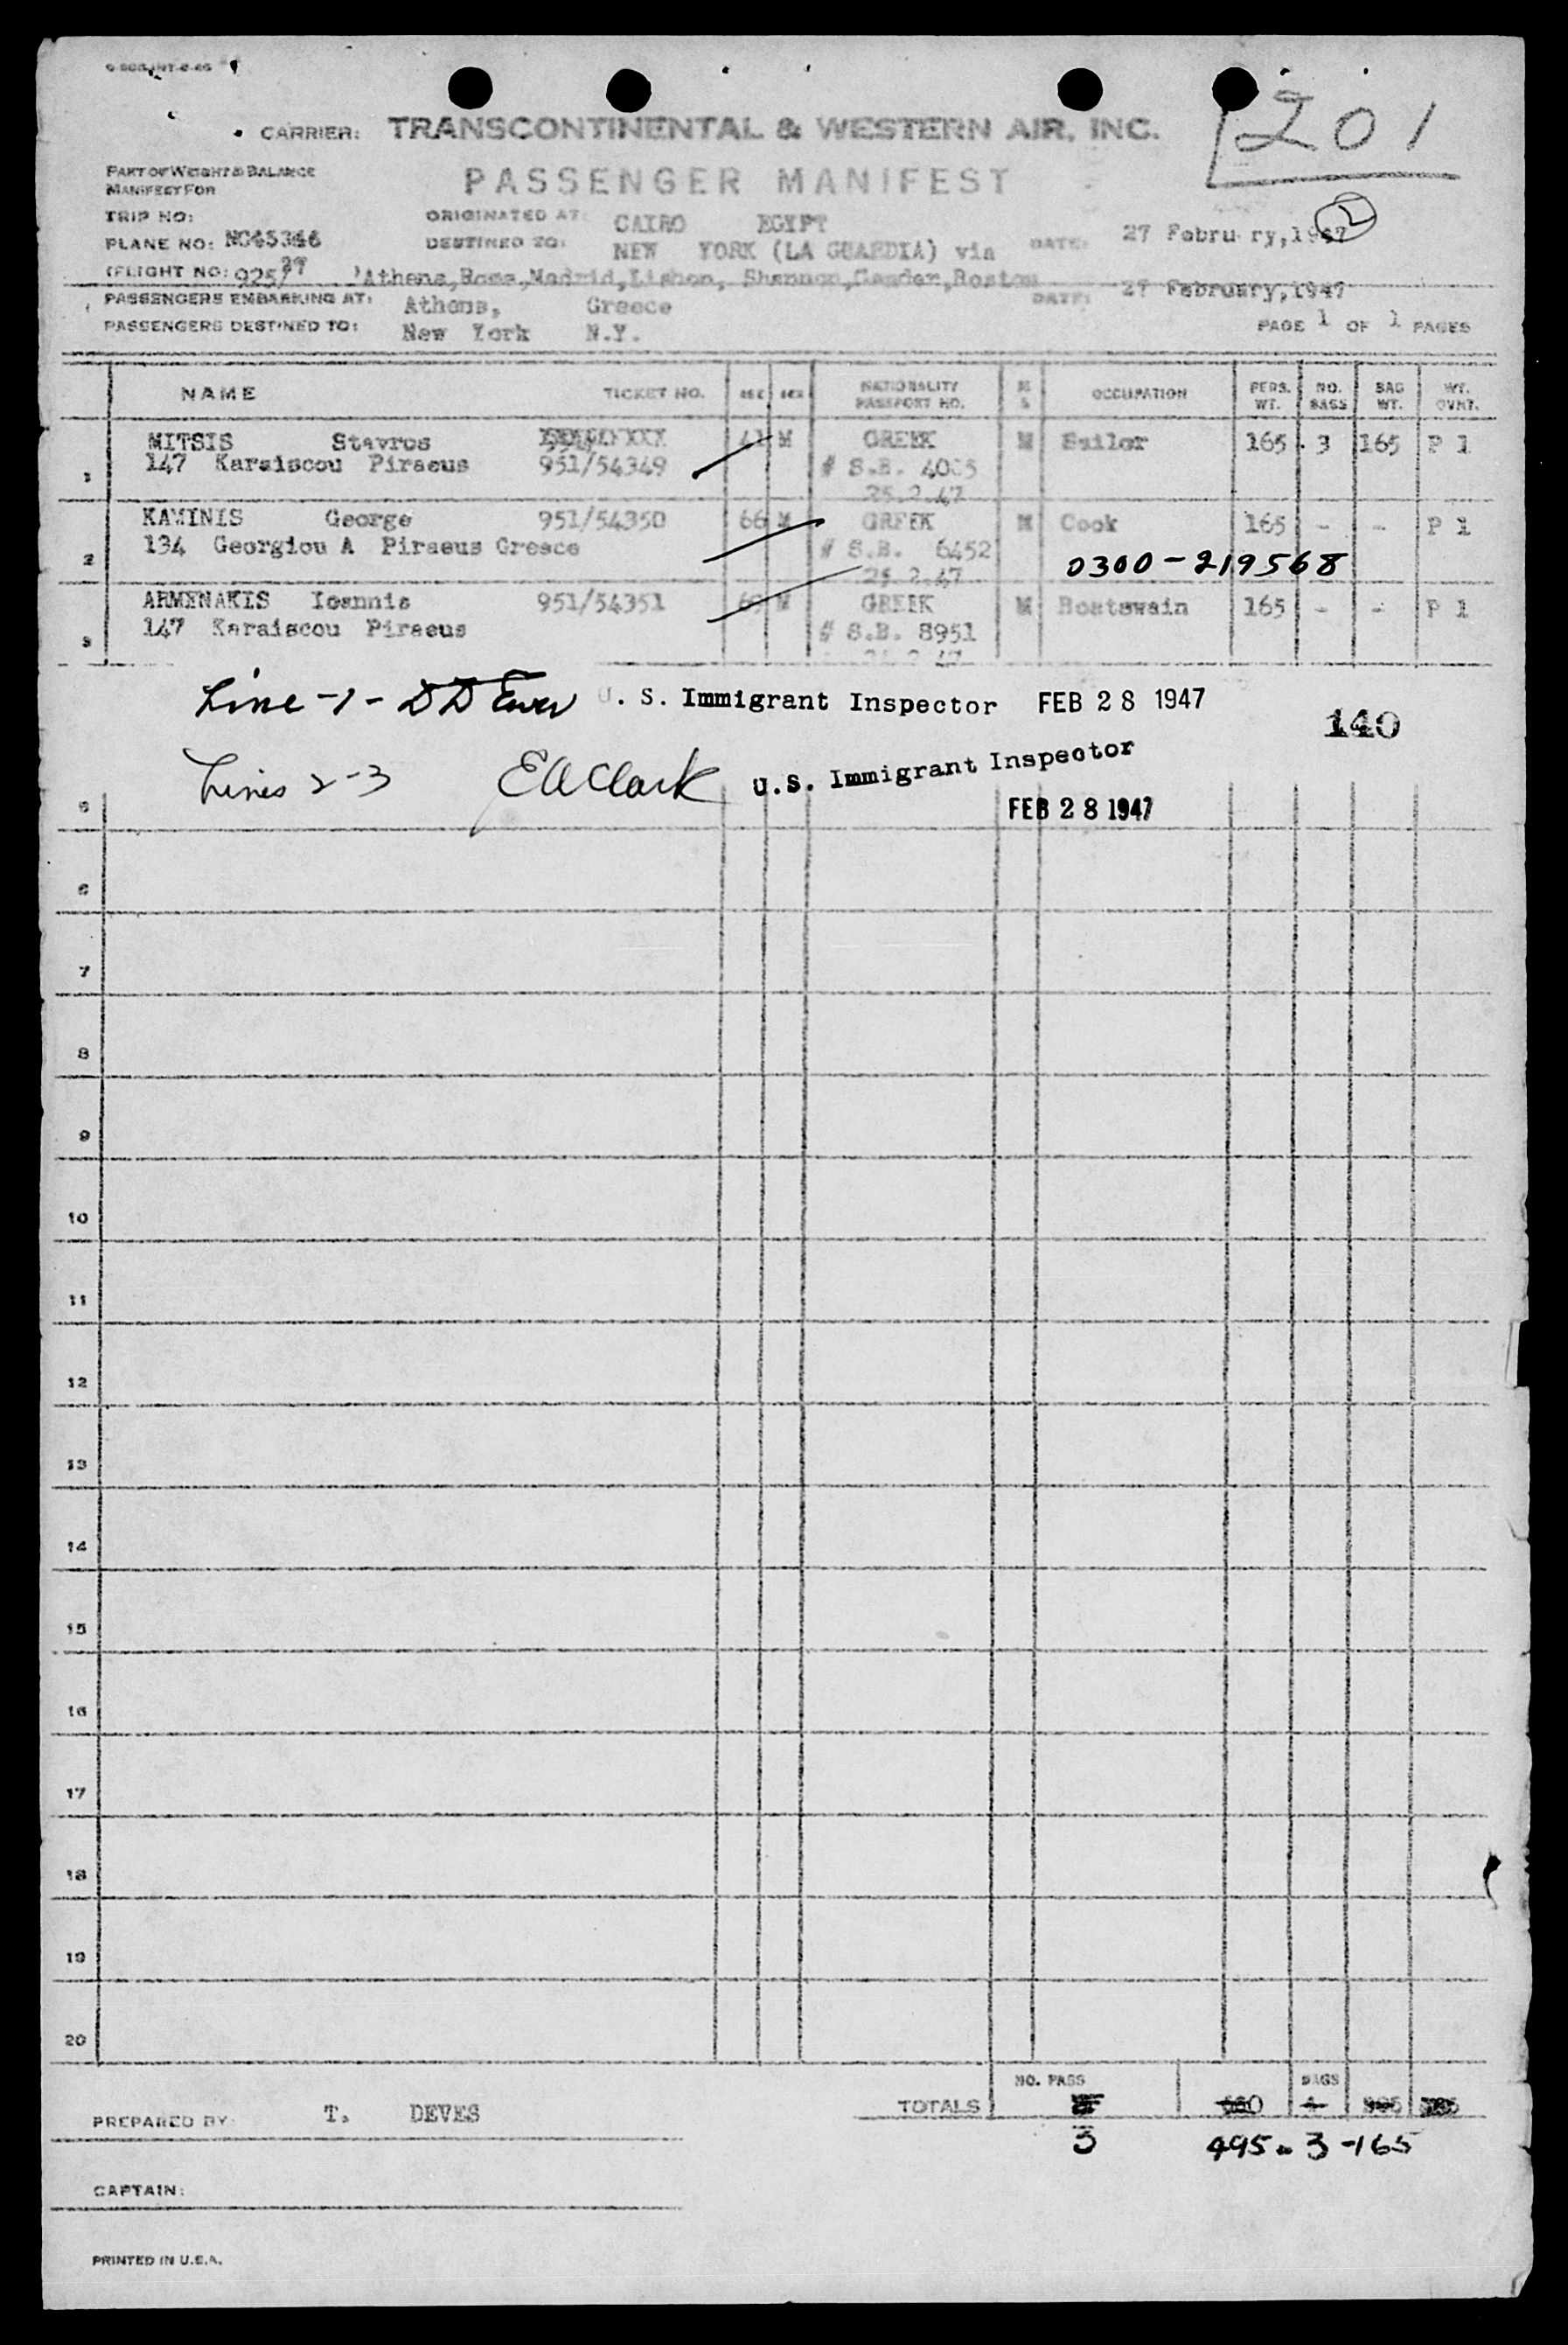 201
CARRIER: TRANSCONTINENTAL & WESTERN AIR, INC.
PART OF WEIGHT & BALANCE
MANIFEST FOR
PASSENGER MANIFEST
2
TRIP NO:
ORIGINATED AT: CAIRO EGYPT
DATE: 27 Febru ry,1947
PLANE NO: NC45346
DESTINED TO: NEW YORK (LA GUARDIA) via
(FLIGHT NO: 925/27 ) Athens,Rome,Madrid,Lisbon, Shannon,Gander,Boston
PASSENGERS EMBARKING AT: Athens, Greece DATE: 27 February,1947
PASSENGERS DESTINED TO: New York N.Y. PAGE 1 OF 1 PAGES
NAME TICKET NO. AGE SEX NATIONALITY PASSPORT NO. M S OCCUPATION PERS. WT. NO. BAGS BAG WT. WT. OVNT.
1 MITSIS Stavros 41 M GREEK M Sailor 165 3 165 P 1
147 Karaiscou Piraeus 951/54349 # S.B.
25.2.47
2 KAMINIS George 951/54350 66 M GREEK M Cook 165 - - P 1
134 Georgiou A Piraeus Greece # S.B. 6452 0300-219568
25.2.47
3 ARMENAKIS Ioannis 951/54351 M GREEK M Boatswain 165 - - P 1
147 Karaiscou Piraeus # S.B. 8951
Line -1- U. S. Immigrant Inspector FEB 28 1947
140
Lines 2-3 EA Clark U.S. Immigrant Inspector
FEB 28 1947
5
6
7
8
9
10
11
12
13
14
15
16
17
18
19
20
NO. PASS BAGS
PREPARED BY: T. DEVES TOTALS
3 495 - 3 - 165
CAPTAIN:
PRINTED IN U.S.A.